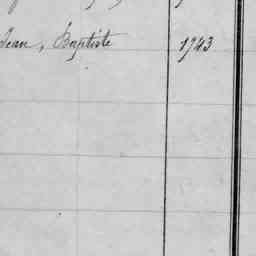 Jean, Baptiste 1743